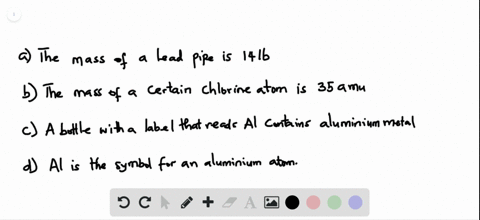 a) The mass of a lead pipe is 14 lb
b) The mass of a certain chlorine atom is 35 amu
c) A bottle with a label that reads Al contains aluminium metal
d) Al is the symbol for an aluminium atom.
A